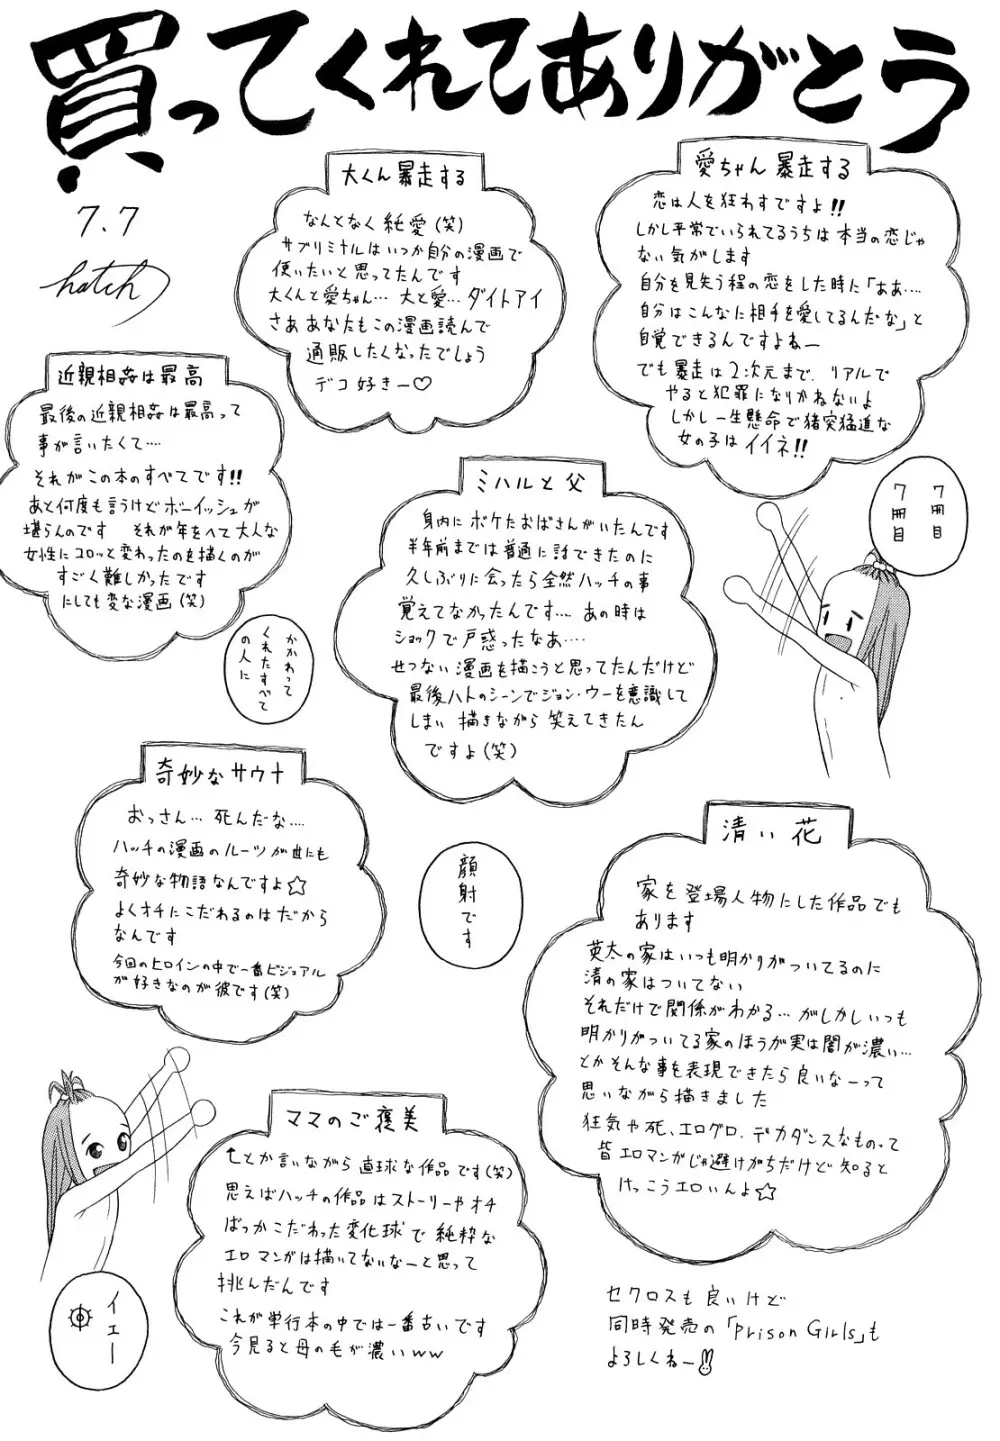 買ってくれてありがとう
7.7
hatch
愛ちゃん暴走する
恋は人を狂わすですよ!!
しかし平常でいられてるうちは本当の恋じゃ
ない気がします
自分を見失う程の恋をした時に「ああ‥‥
自分はこんなに相手を愛してるんだな」と
自覚できるんですよねー
でも暴走は2次元まで、リアルで
やると犯罪になりかねないよ
しかし一生懸命で猪突猛進な
女の子はイイネ!!
大くん暴走する
なんとなく純愛(笑)
サブリミナルはいつか自分の漫画で
使いたいと思ってたんです
大くんと愛ちゃん… 大と愛… ダイトアイ
さああなたもこの漫画読んで
通販したくなったでしょう
デコ好きー♡
近親相姦は最高
最後の近親相姦は最高って
事が言いたくて‥‥
それがこの本のすべてです!!
あと何度も言うけどボーイッシュが
堪らんのです それが年をへて大人な
女性にコロッと変わったのを描くのが
すごく難しかったです
にしても変な漫画(笑)
7冊目
7冊目
ミハルと父
身内にボケたおばさんがいたんです
半年前までは普通に話できたのに
久しぶりに会ったら全然ハッチの事
覚えてなかったんです‥‥ あの時は
ショックで戸惑ったなあ‥‥
せつない漫画を描こうと思ってたんだけど
最後ハトのシーンでジョン・ウーを意識して
しまい 描きながら 笑えてきたん
ですよ(笑)
かかわって
くれたすべて
の人に
奇妙なサウナ
おっさん… 死んだな‥‥
ハッチの漫画のルーツが世にも
奇妙な物語なんですよ☆
よくオチにこだわるのはだから
なんです
今回のヒロインの中で一番ビジュアル
が好きなのが彼です(笑)
顔射です
清い花
家を登場人物にした作品でも
あります
英太の家はいつも明かりがついてるのに
清の家はついてない
それだけで関係がわかる… がしかしいつも
明かりがついてる家のほうが実は闇が濃い…
とかそんな事を表現できたら良いなーって
思いながら描きました
狂気や死、エログロ、デカダンスなものって
皆エロマンガじゃ避けがちだけど知ると
けっこうエロいんよ☆
ママのご褒美
↑とか言いながら 直球な作品です(笑)
思えばハッチの作品はストーリーやオチ
ばっかこだわった変化球で純粋な
エロマンガは描いてないなーと思って
挑んだんです
これが単行本の中では一番古いです
今見ると母の毛が濃いww
イェー
セクロスも良いけど
同時発売の「Prison Girls」も
よろしくねー